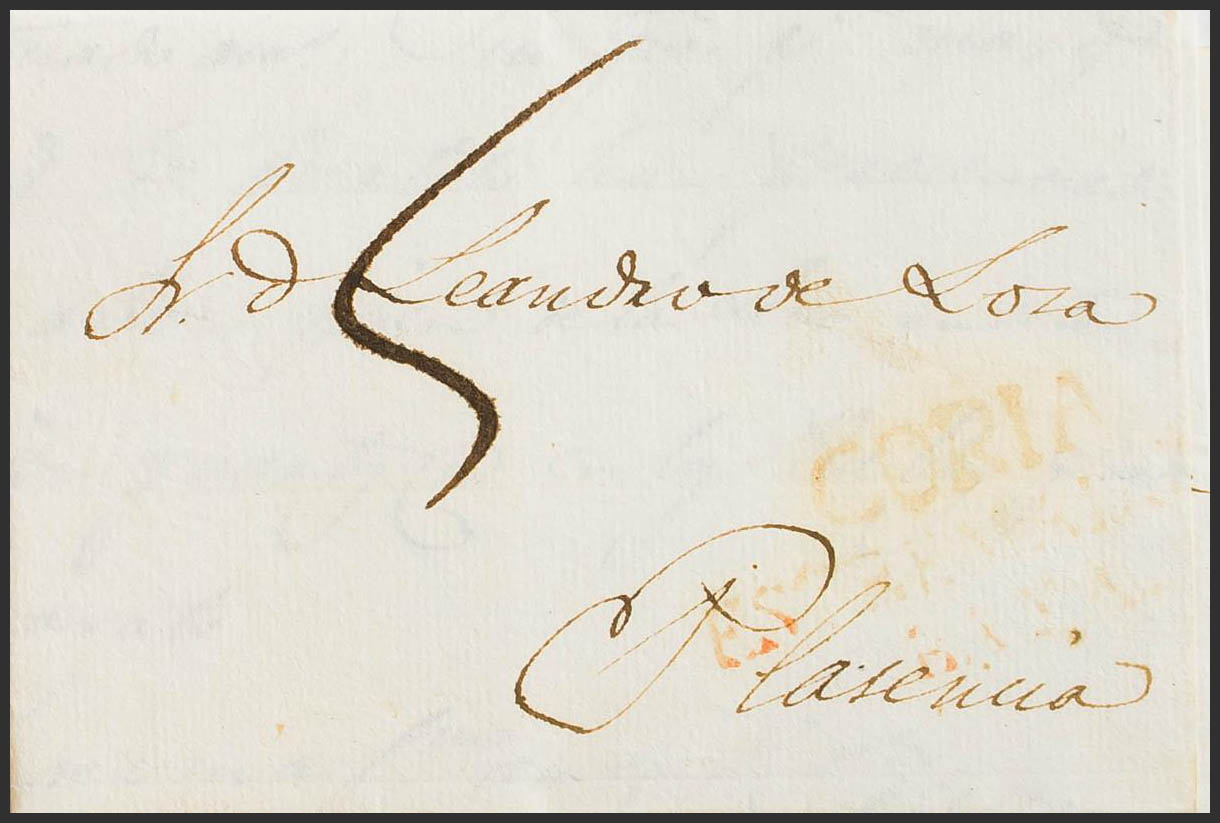 Sr. d Leandro de Losa
5
CORIA
Plasencia